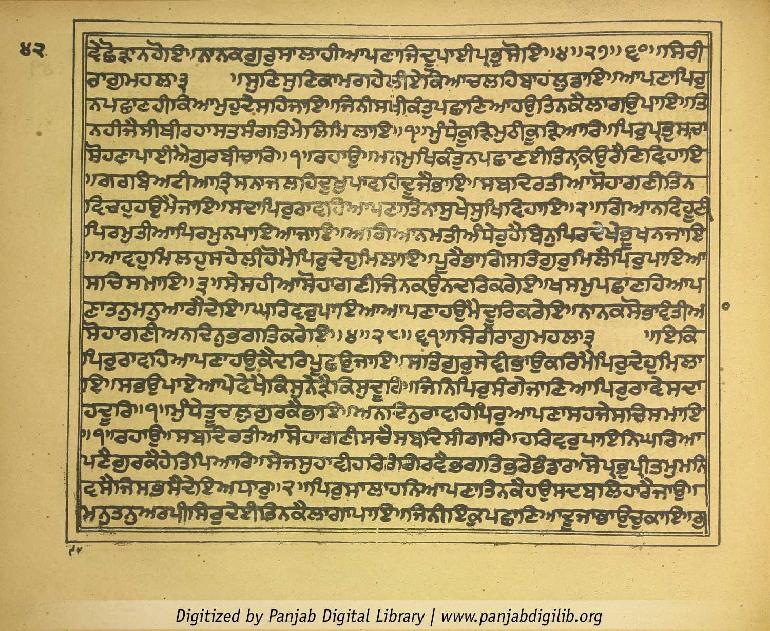 ੪੨
ਵਿਛੋੜਾਨਹੋਇ॥ਨਾਨਕਗੁਰੁਸਾਲਾਹੀਆਪਣਾਜਿਦੂਪਾਈਪ੍ਰਭੁਸੋਇ॥੪॥੨੭॥੬੦॥ਸਿਰੀ
ਰਾਗੁਮਹਲਾ੩ ॥ਸੁਣਿਸੁਣਿਕਾਮਗਹੇਲੀਏਕਿਆਚਲਹਿਬਾਹਲੁਡਾਇ॥ਆਪਣਾਪਿਰੁ
ਨਪਛਾਣਹੀਕਿਆਮੁਹੁਦੇਸਹਿਜਾਇ॥ਜਿਨੀਸਖੀਕੰਤੁਪਛਾਣਿਆਹਉਤਿਨਕੈਲਾਗਉਪਾਇ॥ਤਿ
ਨਹੀਜੈਸੀਥੀਰਹਾਸਤਸੰਗਤਿਮੇਲਿਮਿਲਾਇ॥੧॥ਮੁੰਧੇਕੂੜਿਮੁਠੀਕੂੜਿਆਰਿ॥ਪਿਰੁਪ੍ਰਭੁਸਾਚਾ
ਸੋਹਣਾਪਾਈਐਗੁਰਬੀਚਾਰਿ॥੧॥ਰਹਾਉ॥ਮਨਮੁਖਿਕੰਤੁਨਪਛਾਣਈਤਿਨਕਿਉਰੈਣਿਵਿਹਾਇ
॥ਗਰਬਿਅਟੀਆਤ੍ਰਿਸਨਾਜਲਹਿਦੁਖੁਪਾਵਹਿਦੂਜੈਭਾਇ॥ਸਬਦਿਰਤੀਆਸੋਹਾਗਣੀਤਿਨ
ਵਿਚਹੁਹਉਮੈਜਾਇ॥ਸਦਾਪਿਰੁਰਾਵਹਿਆਪਣਾਤਿਨਾਸੁਖੇਸੁਖਿਵਿਹਾਇ॥੨॥ਗਿਆਨਵਿਹੂਣੀ
ਪਿਰਮੁਤੀਆਪਿਰਮੁਨਪਾਇਆਜਾਇ॥ਅਗਿਆਨਮਤੀਅੰਧੇਰੁਹੈਬਿਨੁਪਿਰਦੇਖੇਭੁਖਨਜਾਇ
॥ਆਵਹੁਮਿਲਹੁਸਹੇਲੀਹੋਮੈਪਿਰੁਦੇਹੁਮਿਲਾਇ॥ਪੂਰੈਭਾਗਿਸਤਿਗੁਰੁਮਿਲੈਪਿਰੁਪਾਇਆ
ਸਚਿਸਮਾਇ॥੩॥ਸੇਸਹੀਆਸੋਹਾਗਣੀਜਿਨਕਉਨਦਰਿਕਰੇਇ॥ਖਸਮੁਪਛਾਣਹਿਆਪ
ਣਾਤਨੁਮਨੁਆਗੈਦੇਇ॥ਘਰਿਵਰੁਪਾਇਆਆਪਣਾਹਉਮੈਦੂਰਿਕਰੇਇ॥ਨਾਨਕਸੋਭਾਵੰਤੀਆ
ਸੋਹਾਗਣੀਅਨਦਿਨੁਭਗਤਿਕਰੇਇ॥੪॥੨੮॥੬੧॥ਸਿਰੀਰਾਗੁਮਹਲਾ੩ ॥ਇਕਿ
ਪਿਰੁਰਾਵਹਿਆਪਣਾਹਉਕੈਦਰਿਪੂਛਉਜਾਇ॥ਸਤਿਗੁਰੁਸੇਵੀਭਾਉਕਰਿਮੈਪਿਰੁਦੇਹੁਮਿਲਾ
ਇ॥ਸਭੁਉਪਾਏਆਪੇਵੇਖੈਕਿਸੁਨੇੜੈਕਿਸੁਦੂਰਿ॥ਜਿਨਿਪਿਰੁਸੰਗੇਜਾਣਿਆਪਿਰੁਰਾਵੇਸਦਾ
ਹਦੂਰਿ॥੧॥ਮੁੰਧੇਤੂਚਲੁਗੁਰਕੈਭਾਇ॥ਅਨਦਿਨੁਰਾਵਹਿਪਿਰੁਆਪਣਾਸਹਜੇਸਚਿਸਮਾਇ
॥੧॥ਰਹਾਉ॥ਸਬਦਿਰਤੀਆਸੋਹਾਗਣੀਸਚੈਸਬਦਿਸੀਗਾਰਿ॥ਹਰਿਵਰੁਪਾਇਨਿਘਰਿਆ
ਪਣੈਗੁਰਕੈਹੇਤਿਪਿਆਰਿ॥ਸੇਜਸੁਹਾਵੀਹਰਿਰੰਗਿਰਵੈਭਗਤਿਭਰੇਭੰਡਾਰ॥ਸੋਪ੍ਰਭੁਪ੍ਰੀਤਮੁਮਨਿ
ਵਸੈਜਿਸਭਸੈਦੇਇਅਧਾਰੁ॥੨॥ਪਿਰੁਸਾਲਾਹਨਿਆਪਣਾਤਿਨਕੈਹਉਸਦਬਲਿਹਾਰੈਜਾਉ॥
ਮਨੁਤਨੁਅਰਪੀਸਿਰੁਦੇਈਤਿਨਕੈਲਾਗਾਪਾਇ॥ਜਿਨੀਇਕੁਪਛਾਣਿਆਦੂਜਾਭਾਉਚੁਕਾਇ॥ਗੁ
Digitized by Panjab Digital Library | www.panjabdigilib.org